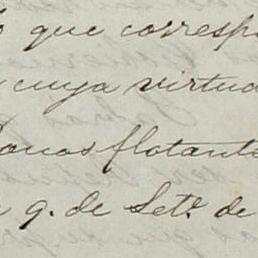 que corresp
cuya virtud
flotante
9. de Set.e de